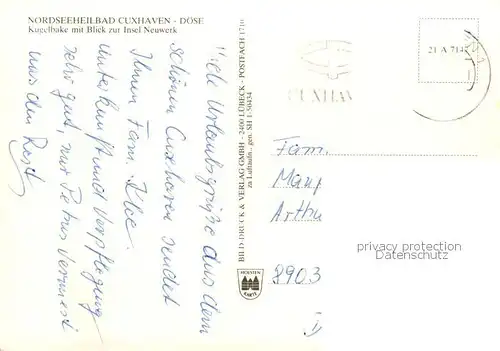 NORDSEEHEILBAD CUXHAVEN - DÖSE
Kugelbake mit Blick zur Insel Neuwerk
Viele Urlaubsgrüße aus dem
schönen Cuxhaven sendet
Ihnen Fam.
Unterkunft und Verpflegung
sehr gut, nur Petrus vermiest
uns den Rest
BILD DRUCK & VERLAG GMBH - 2400 LÜBECK - POSTFACH 1710
zu Luftaufn.: gen. SH 1-50434
HOLSTEN
KARTE
CUXHAV
21 A 714
Fam.
Manf
Arthu
8903
privacy protection
Datenschutz